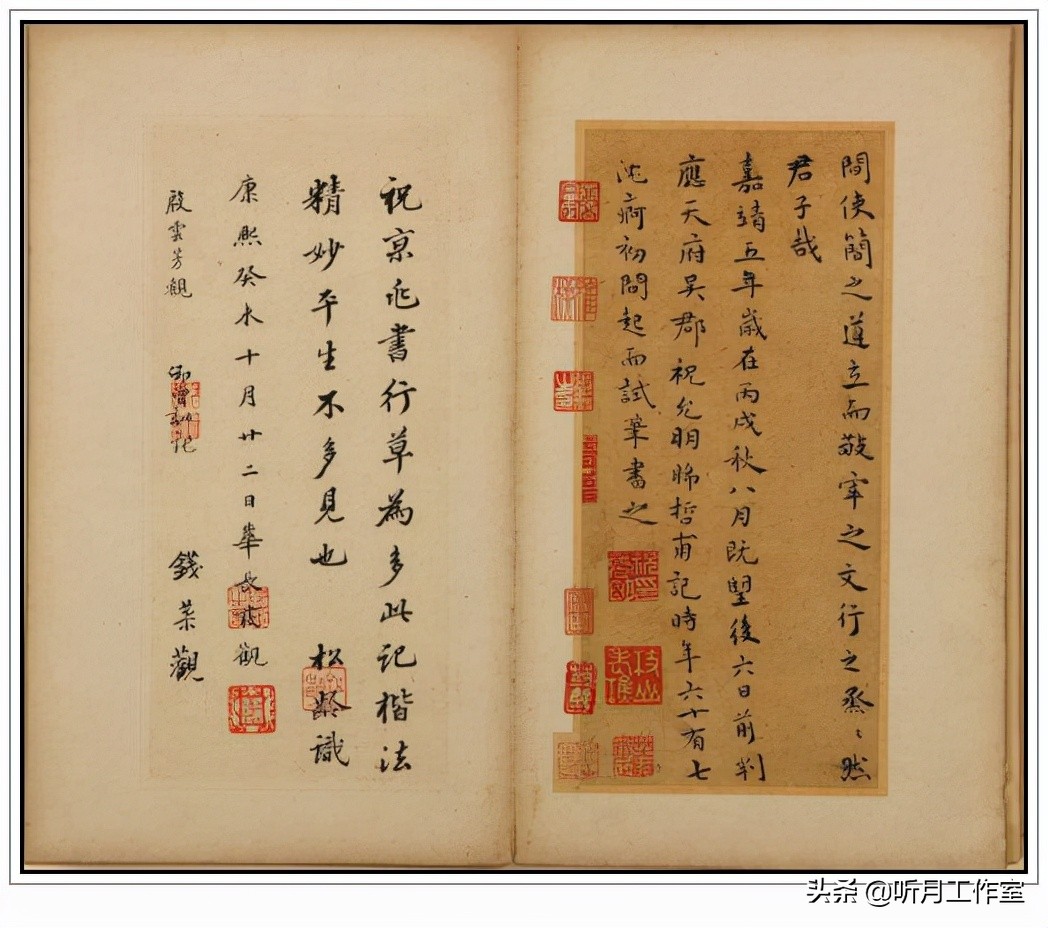 間使簡之道立而敬牢之文行之烝〻然
君子哉
嘉靖五年歲在丙戌秋八月既望後六日前判
應天府吳郡祝允明晞哲甫記時年六十有七
沈痾初間起而試筆書之
祝京兆書行草為多此記楷法
精妙平生不多見也 松齡識
康熙癸未十月廿二日華長發觀
殷雲芳觀
錢 觀
头条 @听月工作室